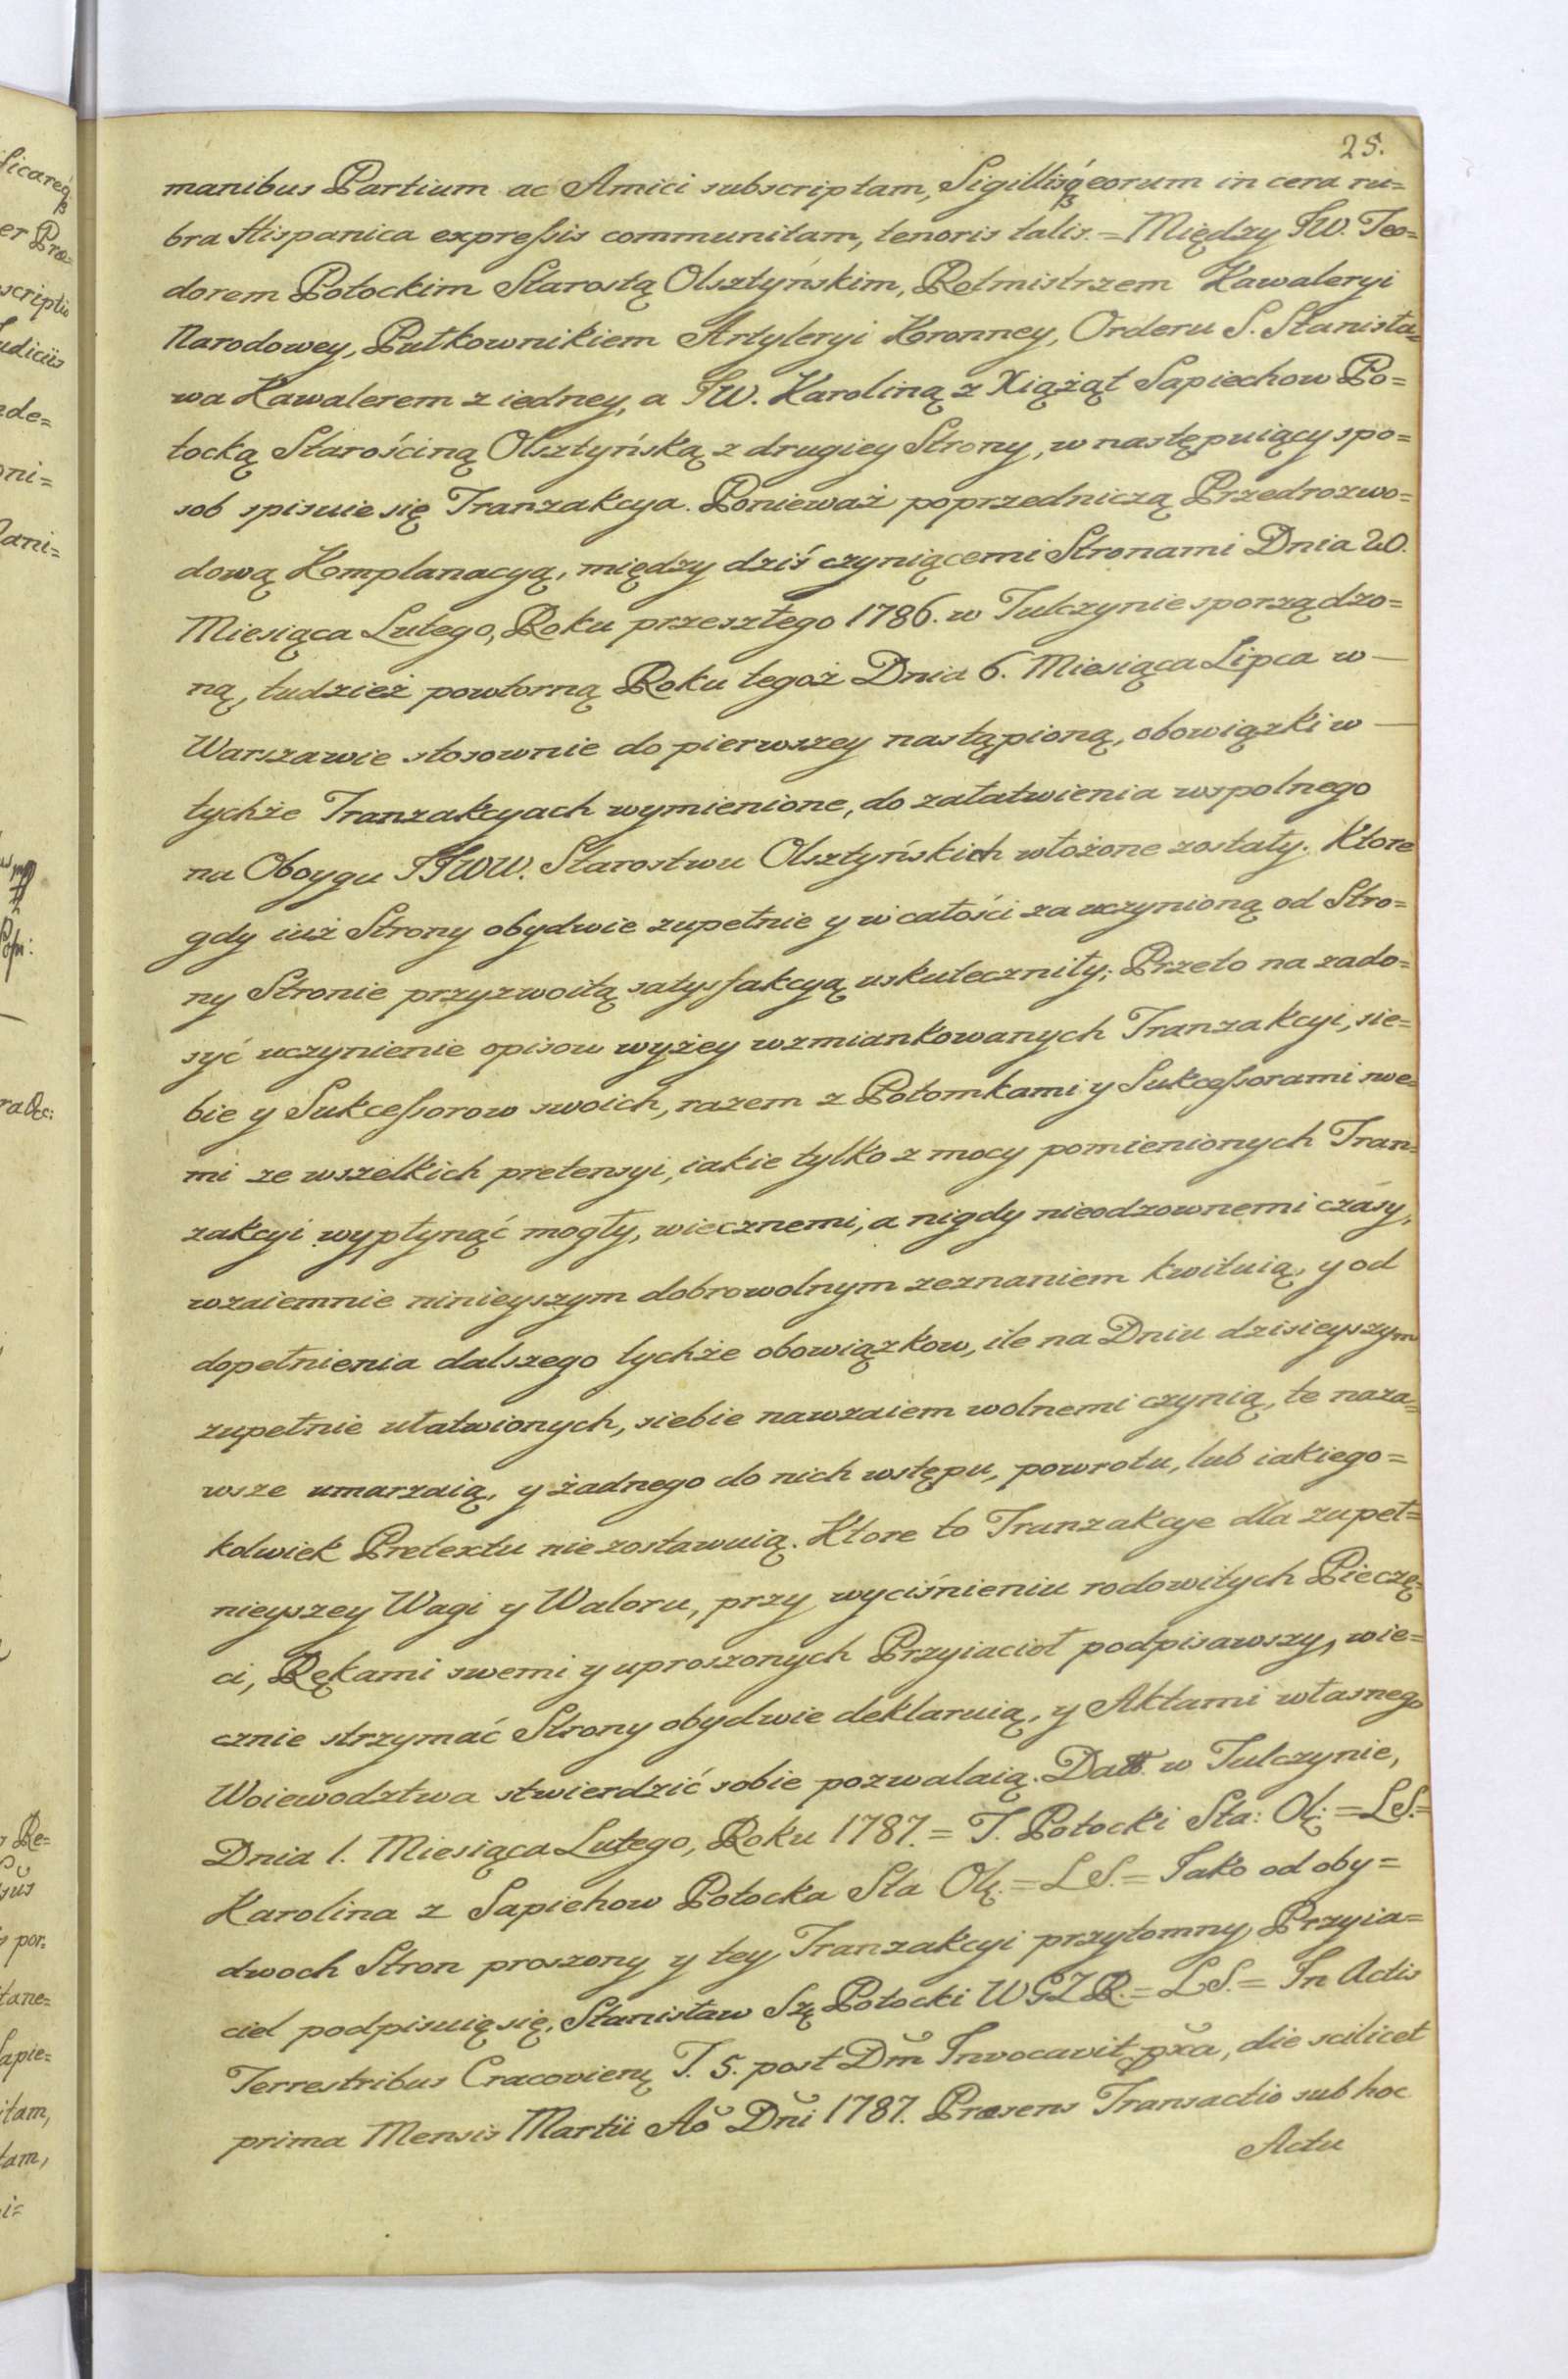 25.
manibus Partium ac Amici subscriptam, Sigillisq́ eorum in cera ru=
bra Hispanica expreſsis communitam, tenoris talis. = Między JW. Teo=
dorem Potockim Starostą Olsztyńskim, Rotmistrzem Kawaleryi
Narodowey, Pułkownikiem Artyleryi Koronney, Orderu S. Stanisła=
wa Kawalerem z iedney, a JW. Karoliną z Xiążąt Sapiechow Po=
tocką Starościną Olsztyńską z drugiey Strony, w następuiący spo=
sob spisuie się Tranzakcya. Ponieważ poprzedniczą Przedrozwo=
dową Komplanacyą, między dziś czyniącemi Stronami Dnia 20.
Miesiąca Lutego, Roku przeszłego 1786. w Tulczynie sporządzo=
ną, tudzież powtorną Roku tegoż Dnia 6. Miesiąca Lipca w —
Warszawie stosownie do pierwszey nastąpioną, obowiązki w —
tychże Tranzakcyach wymienione, do załatwienia wspolnego
na Oboygu JJWW. Starostwu Olsztyńskich włożone zostały. Ktore
gdy iuż Strony obydwie zupełnie y w całości za uczynioną od Stro=
ny Stronie przyzwoitą satysfakcyą uskuteczniły; Przeto na zado=
syć uczynienie opisow wyżey wzmiankowanych Tranzakcyi, sie=
bie y Sukceſsorow swoich, razem z Potomkami y Sukceſsorami swe=
mi ze wszelkich pretensyi, iakie tylko z mocy pomienionych Tran=
zakcyi wypłynąć mogły, wiecznemi, a nigdy nieodzownemi czasy,
wzaiemnie ninieyszym dobrowolnym zeznaniem kwituią, y od
dopełnienia dalszego tychże obowiązkow, ile na Dniu dzisieyszym
zupełnie ułatwionych, siebie nawzaiem wolnemi czynią, te naza=
wsze umarzaią, y żadnego do nich wstępu, powrotu, lub iakiego=
kolwiek Pretextu nie zostawuią. Ktore to Tranzakcye dla zupeł=
nieyszey Wagi y Waloru, przy wyciśnieniu rodowitych Pieczę=
ci, Rękami swemi y uproszonych Przyiacioł podpisawszy, wie=
cznie strzymać Strony obydwie deklaruią, y Aktami własnego
Woiewodztwa stwierdzić sobie pozwalaią. Datt. w Tulczynie,
Dnia 1. Miesiąca Lutego, Roku 1787. = T. Potocki Sta: Olę: = LS. =
Karolina z Sapiehow Potocka Sta Olę. = LS. = Jako od oby=
dwoch Stron proszony y tey Tranzakcyi przytomny Przyia=
ciel podpisuię się, Stanisław Szę Potocki WGZR. = LS. = In Actis
Terrestribus Cracovienę T. 5. post Dm̆ Invocavit px̆a, die scilicet
prima Mensis Martii Aŏ Dn̆i 1787. Præsens Transactio sub hoc
Actu